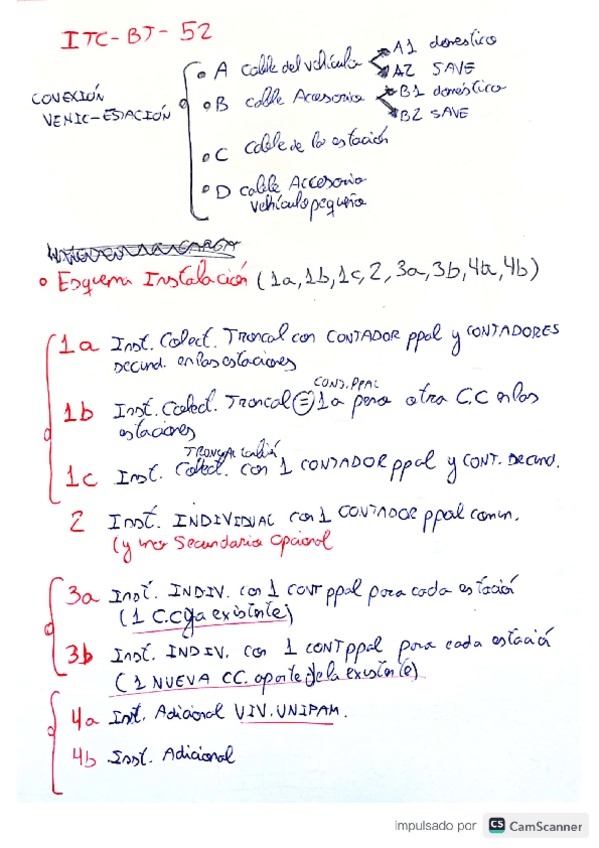 ITC-BT-52
CONEXIÓN
VEHIC-ESTACIÓN
A cable del vehículo
A1 domestico
A2 SAVE
B cable Accesorio
B1 doméstico
B2 SAVE
C cable de la estación
D cable Accesorio
vehículo pequeño
CARGA
Esquema Instalación (1a, 1b, 1c, 2, 3a, 3b, 4a, 4b)
1a Inst. Colect. Troncal con CONTADOR ppal y CONTADORES
secund. en las estaciones
CONT. PPAL
1b Inst. Colect. Troncal = 1a pero otra C.C en las
estaciones
TRONCAL
1c Inst. Colect. con 1 CONTADOR ppal y CONT. secund.
2 Inst. INDIVIDUAL con 1 CONTADOR ppal comun.
(y Secundario opcional
3a Inst. INDIV. con 1 CONT ppal para cada estación
(1 C.C ya existente)
3b Inst. INDIV. con 1 CONT ppal para cada estació
(1 NUEVA CC. aparte de la existente)
4a Inst. Adicional VIV. UNIFAM.
4b Inst. Adicional
impulsado por CS CamScanner